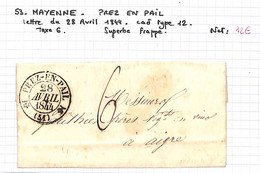 53. MAYENNE - PREZ EN PAIL
lettre du 28 Avril 1844. cad type 12.
Taxe 6. Superbe Frappé. Net: 12E
PREZ-EN-PAIL
28
AVRIL
1844
(51)
6
Messieurs
frères
à aigre